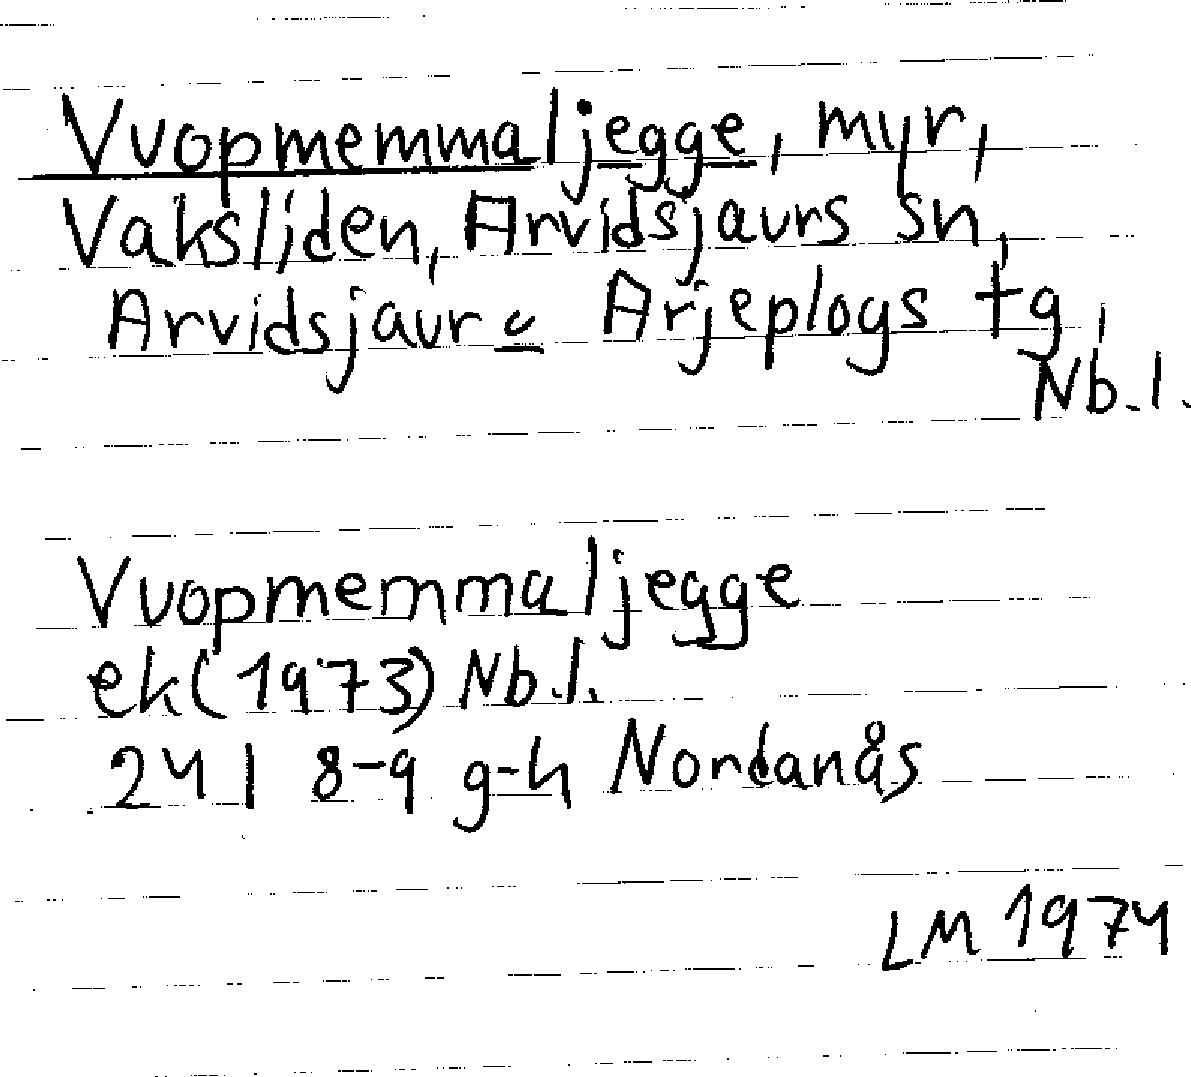 Vuopmemmaljegge, myr,
Vaksliden, Arvidsjaurs sn,
Arvidsjaurs o Arjeplogs tg,
Nb.l.
Vuopmemmaljegge
ek(1973) Nb.l.
24 I 8-9 g-h Nordanås
LM 1974